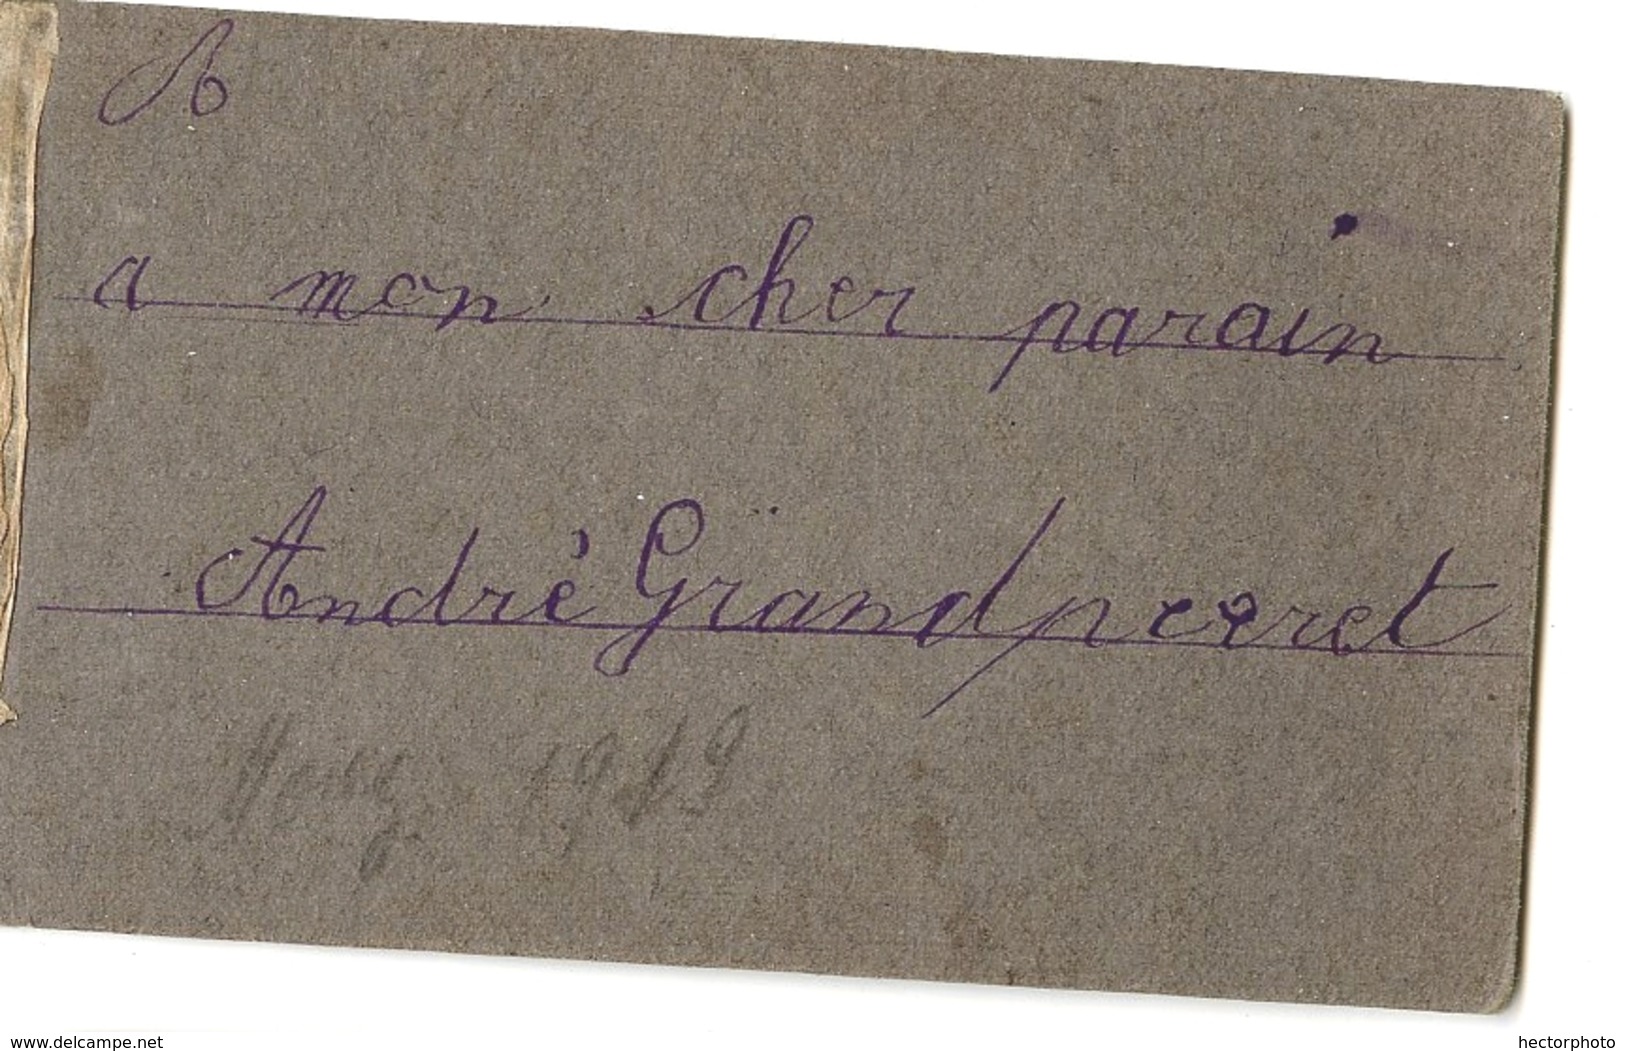 A
a mon cher parain
André Grandperret
1919
www.delcampe.net
hectorphoto